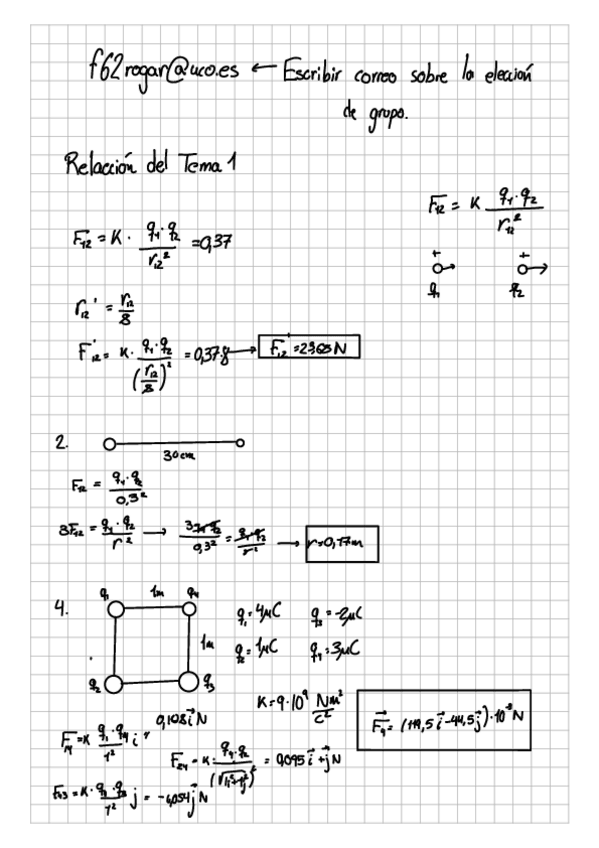 f62rogar@uco.es ← Escribir correo sobre la elección
de grupo.
Relación del Tema 1
F₁₂ = K · q₁·q₂ / r₁₂² = 0,37
F₁₂ = K q₁·q₂ / r₁₂²
+ +
q₁ q₂
r₁₂' = r₁₂ / 8
F'₁₂ = K · q₁·q₂ / (r₁₂/8)² = 0,37·8 → F₁₂' = 23,68 N
2.
30cm
F₁₂ = q₁·q₂ / 0,3²
3F₁₂ = q₁·q₂ / r² → 3q₁·q₂ / 0,3² = q₁·q₂ / r² → r=0,17m
4. q₁ 1m q₄
q₁=4μC q₃=-2μC
1m q₂=1μC q₄=3μC
q₂ q₃
K=9·10⁹ Nm²/C²
F₄ = (119,5 i -44,5 j)·10⁻³ N
F₁₄=K q₁·q₄ / 1² i = 0,108 i N
F₂₄=K· q₄·q₂ / (√1²+1²)² = 0,095 i + j N